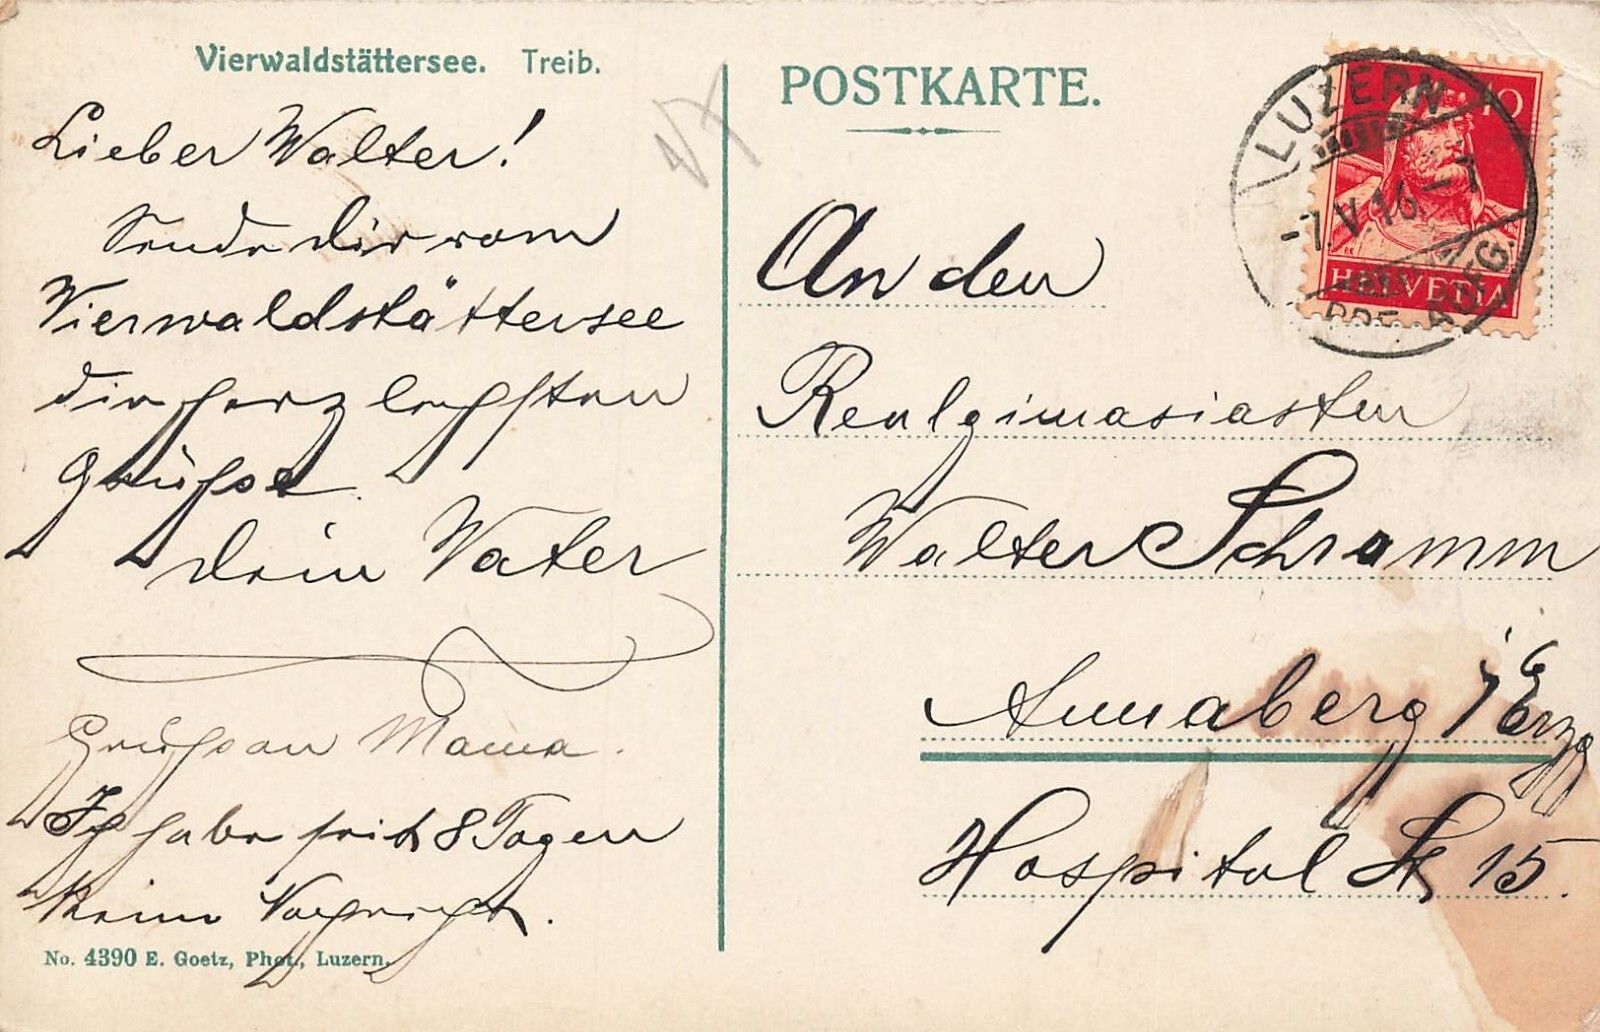 Vierwaldstättersee. Treib.
Lieber Walter!
Sende dir vom
Vierwaldstättersee
die herzlichsten
Grüsse
dein Vater
Grüsse an Mama.
Ich habe seit 8 Tagen
keine Nachricht.
No. 4390 E. Goetz, Phot., Luzern.
POSTKARTE.
LUZERN
-1.V.16.-7
10
HELVETIA
An den
Realgimasiasten
Walter Schramm
Annaberg i Erzg
Hospital St 15.